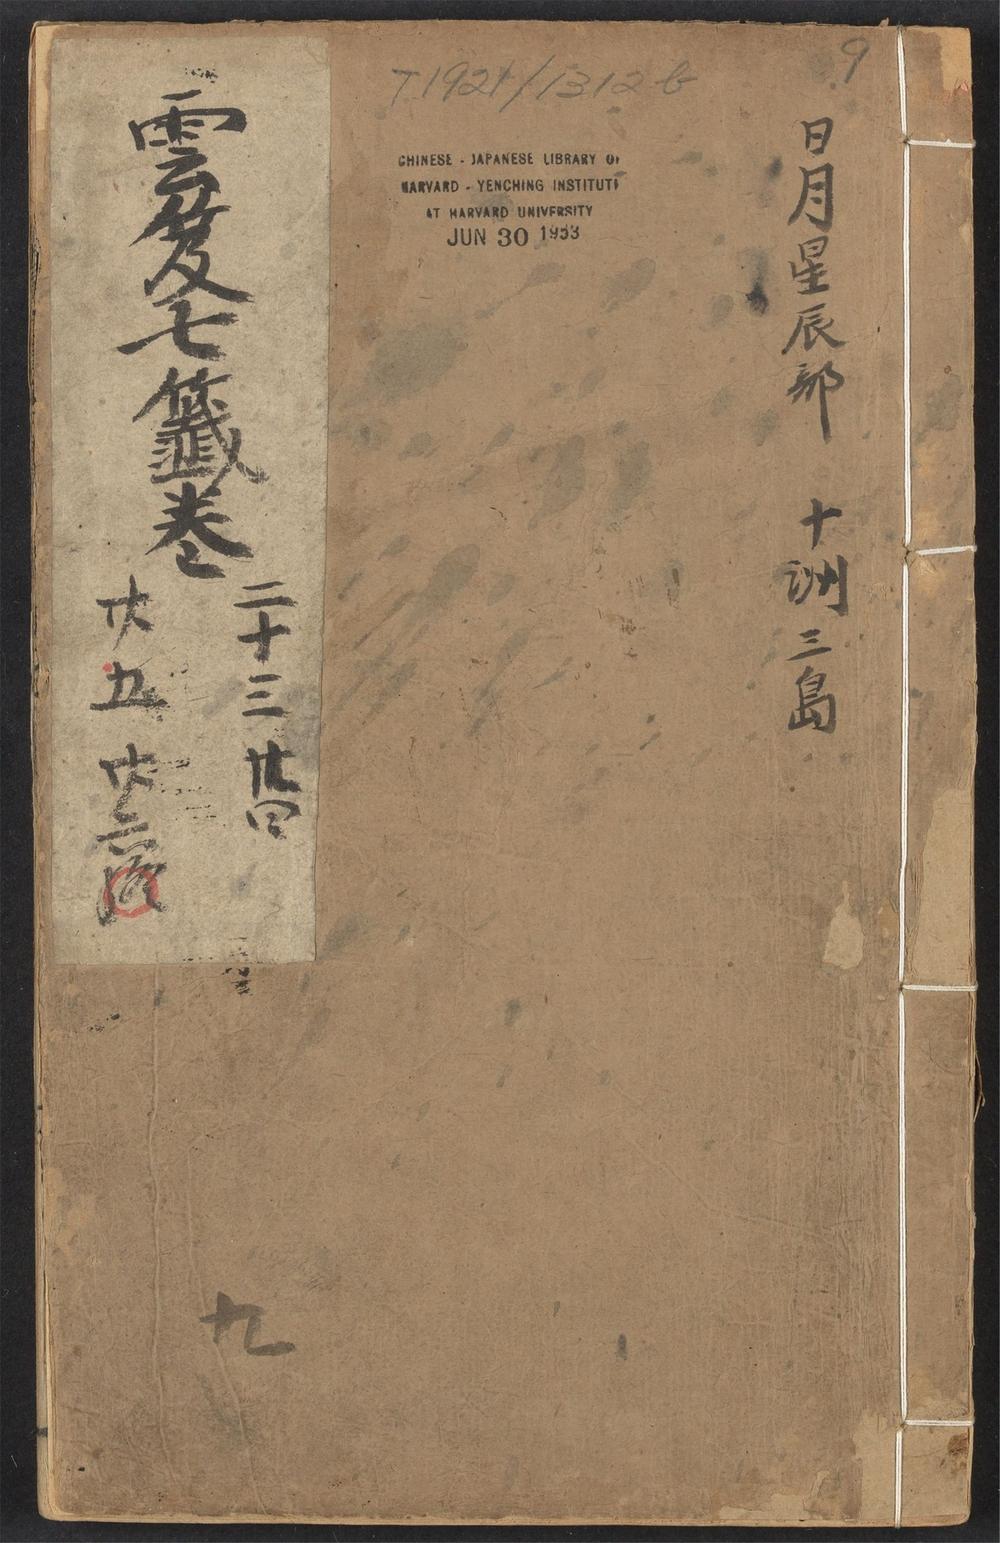 T1921/1312b
9
CHINESE - JAPANESE LIBRARY OF
HARVARD - YENCHING INSTITUTE
AT HARVARD UNIVERSITY
JUN 30 1953
日月星辰部 十洲三島
雲笈七籤卷
二十三 廿四
廿五 廿六
九